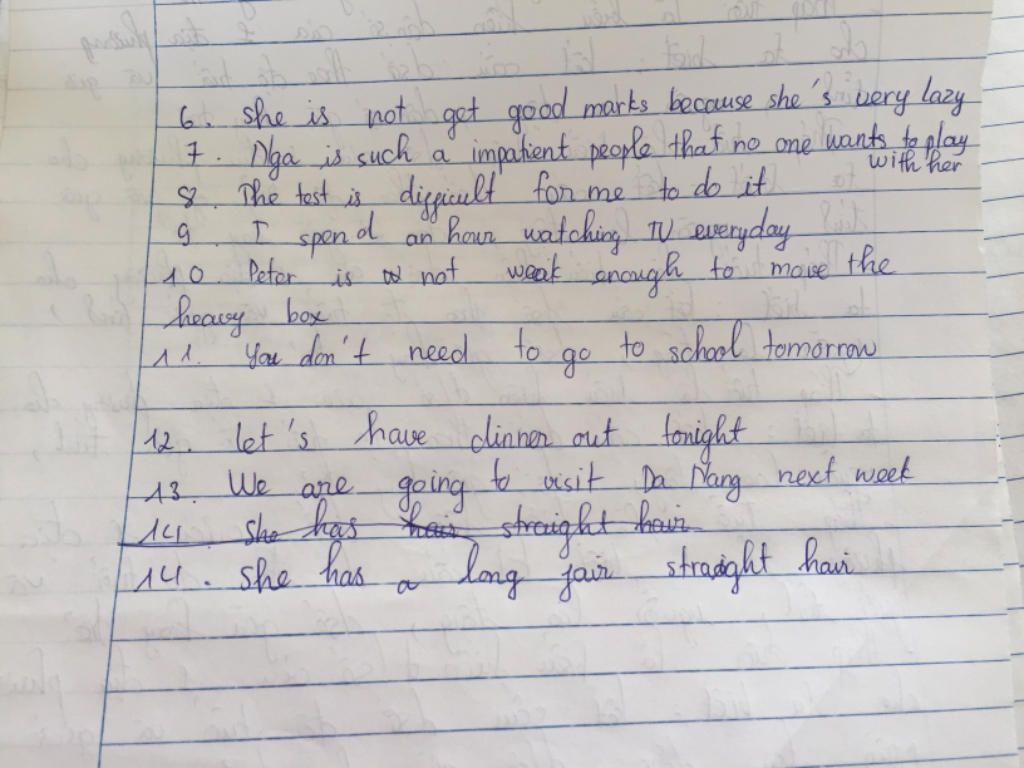 6. she is not get good marks because she's very lazy
7. Nga is such a impatient people that no one wants to play
with her
8. The test is difficult for me to do it
9. I spend an hour watching TV everyday
10. Peter is not weak enough to move the
heavy box
11. You don't need to go to school tomorrow
12. let's have dinner out tonight
13. We are going to visit Da Nang next week
14. She has hair straight hair
14. She has a long fair straight hair